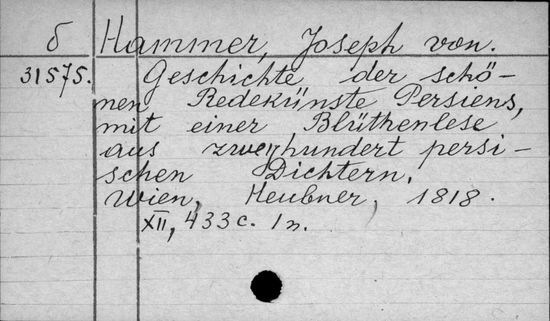 б Hammer, Joseph von.
31575. Geschichte der schö-
nen Redekünste Persiens,
mit einer Blüthenlese
aus zweyhundert persi-
schen Dichtern.
Wien, Heubner, 1818.
XII, 433 с. 1 п.